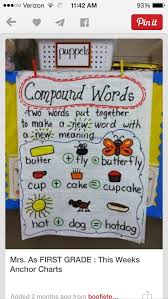 Verizon 11:42 AM 93%
Pin it
puppets
Compound Words
-Two words put together
to make a -new- word with
a -new- meaning.
butter + fly = butterfly
cup + cake = cupcake
hot + dog = hotdog
Mrs. As FIRST GRADE : This Weeks
Anchor Charts
Added 2 months ago from